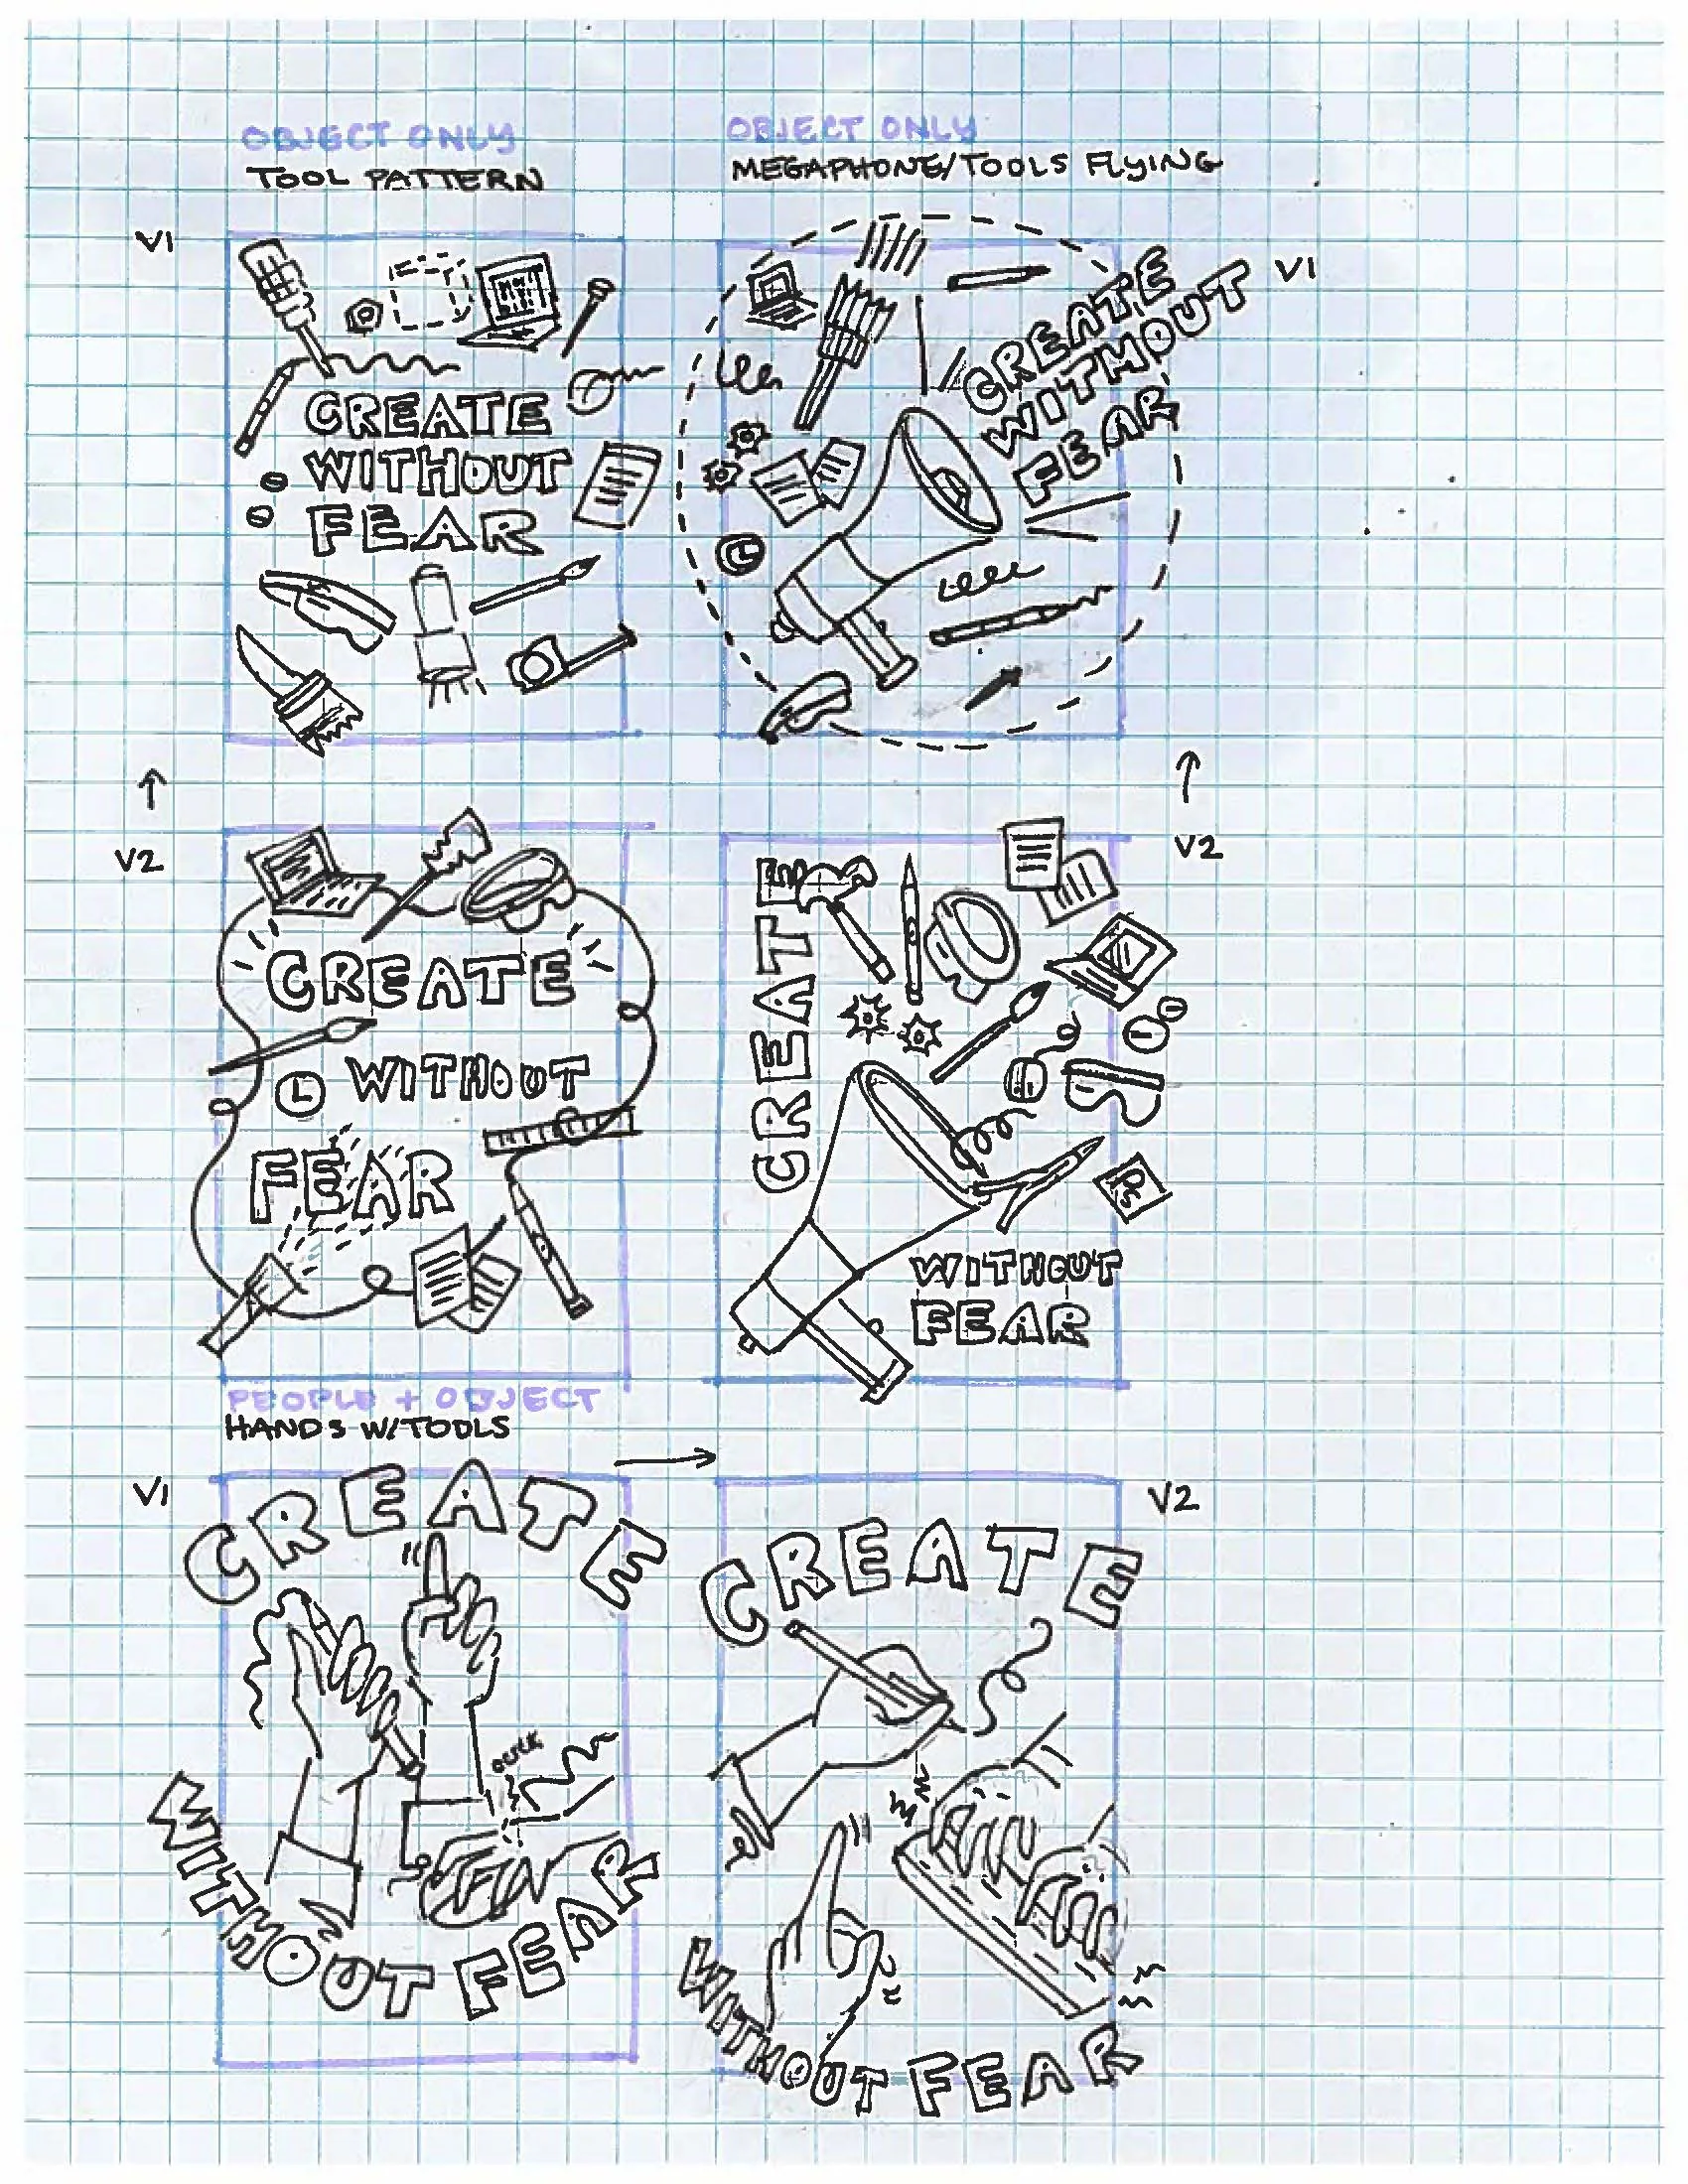 OBJECT ONLY
TOOL PATTERN
V1
CREATE
WITHOUT
FEAR
OBJECT ONLY
MEGAPHONE/TOOLS FLYING
V1
CREATE
WITHOUT
FEAR
V2
CREATE
WITHOUT
FEAR
V2
CREATE
Ps
WITHOUT
FEAR
PEOPLE + OBJECT
HANDS W/TOOLS
V1
CREATE
WITHOUT FEAR
V2
CREATE
WITHOUT FEAR